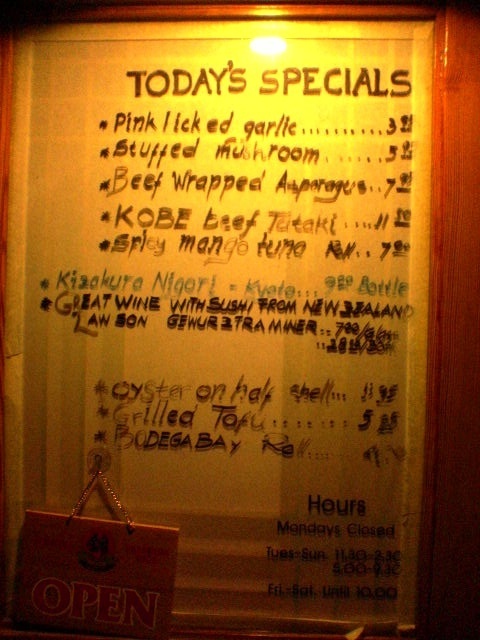 TODAY'S SPECIALS
* Pink licked garlic.......... 3
* Stuffed mushroom....... 5
* Beef Wrapped Asparagus.. 7
* KOBE beef Tataki ... 11
* Spicy mango tuna Roll.. 7
* Kizakura Nigori - Kyoto... 9 Bottle
* GREAT WINE WITH SUSHI FROM NEW ZEALAND
LAWSON GEWURZTRAMINER..
* Oyster on half shell... 11 95
* Grilled Tofu....... 5
* BODEGA BAY Roll.....
Hours
Mondays Closed
Tues-Sun. 11.30-2.30
5.00-9.30
Fri.-Sat. Until 10.00
OPEN